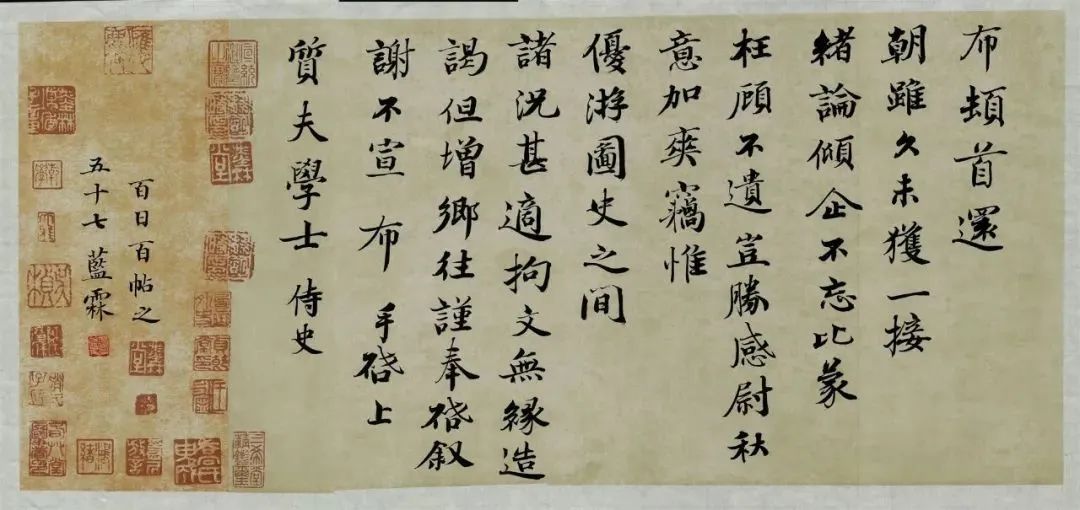 布頓首還
朝雖久未獲一接
緒論傾企不忘比蒙
枉顧不遺豈勝感尉秋
意加爽竊惟
優游圖史之間
諸況甚適拘文無緣造
謁但增鄉往謹奉啓叙
謝不宣 布 手啓上
質夫學士 侍史
百日百帖之
五十七 藍霖